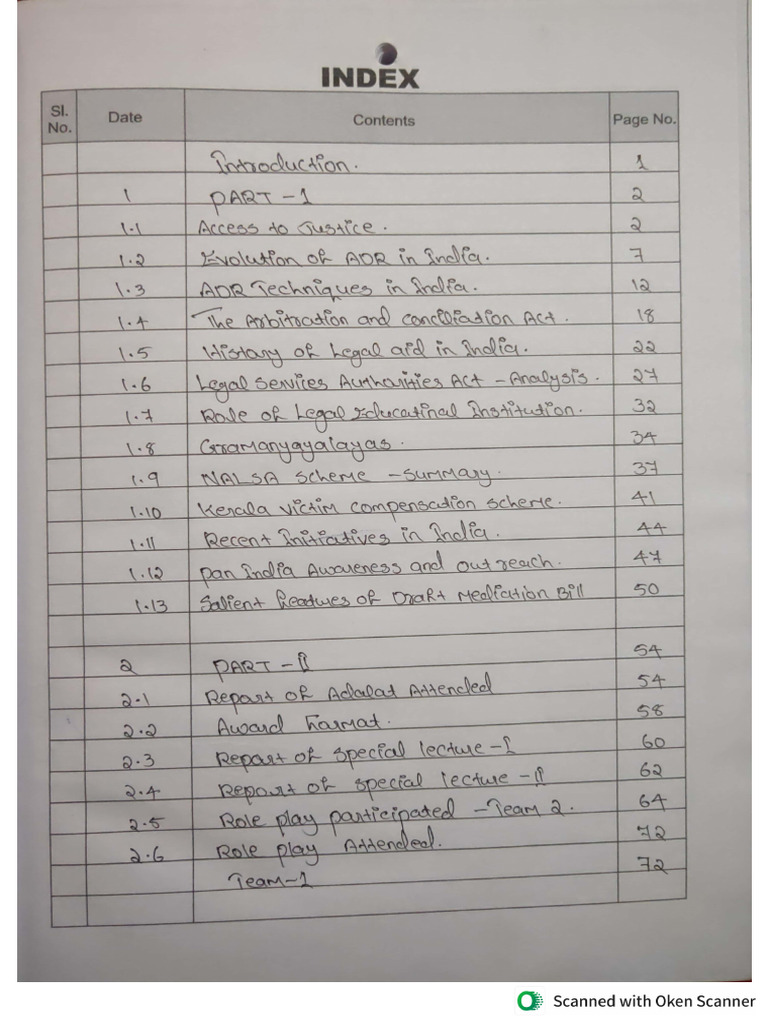 INDEX
Sl. No. Date Contents Page No.
Introduction. 1
1 PART - 1 2
1.1 Access to Justice. 2
1.2 Evolution of ADR in India. 7
1.3 ADR Techniques in India. 12
1.4 The Arbitration and Conciliation Act. 18
1.5 History of Legal aid in India. 22
1.6 Legal Services Authorities Act - Analysis. 27
1.7 Role of Legal Educatinal Institution. 32
1.8 Gramanyayalayas. 34
1.9 NALSA Scheme - Summary. 37
1.10 Kerala Victim Compensation Scheme. 41
1.11 Recent Initiatives in India. 44
1.12 Pan India Awareness and Outreach. 47
1.13 Salient Features of Draft Mediation Bill 50
2 PART - II 54
2.1 Report of Adalat Attended 54
2.2 Award Format. 58
2.3 Report of Special lecture - I 60
2.4 Report of Special lecture - II 62
2.5 Role play participated - Team 2. 64
2.6 Role play Attended. 72
Team - 1 72
Scanned with Oken Scanner